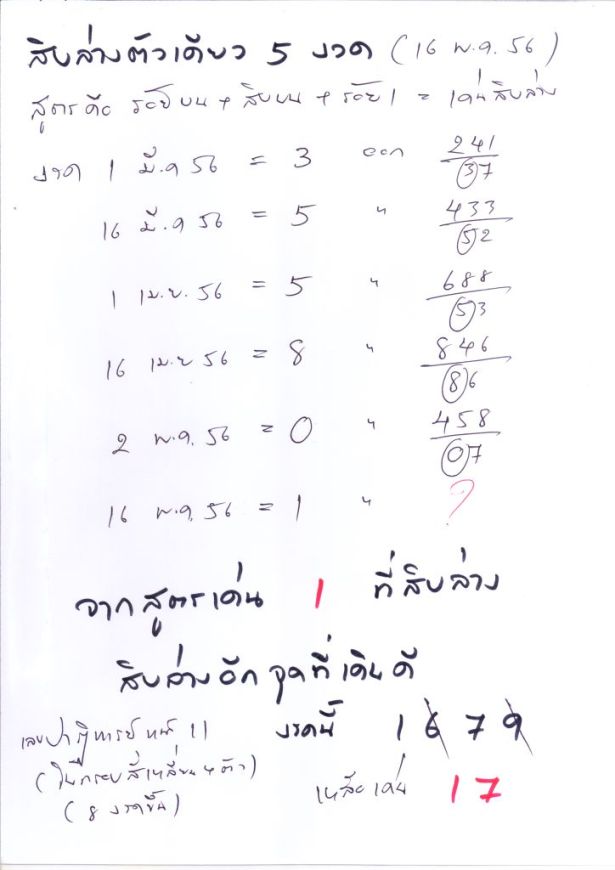 สิบล่างตัวเดียว 5 งวด (16 พ.ค. 56)
สูตรคือ ร้อยบน + สิบบน + ร้อย 1 = เด่นสิบล่าง
งวด 1 มี.ค 56 = 3 ออก 241
37
16 มี.ค 56 = 5 " 433
52
1 เม.ย. 56 = 5 " 688
53
16 เม.ย 56 = 8 " 846
86
2 พ.ค. 56 = 0 " 458
07
16 พ.ค. 56 = 1 " ?
จากสูตรเด่น 1 ที่สิบล่าง
สิบล่างอีกชุดที่เดินดี
เลขปาฏิหารย์ หน้า 11 งวดนี้ 1 6 7 9
(ในกรอบสี่เหลี่ยม 4 ตัว)
เหลือเด่น 17
(8 งวดขึ้น)